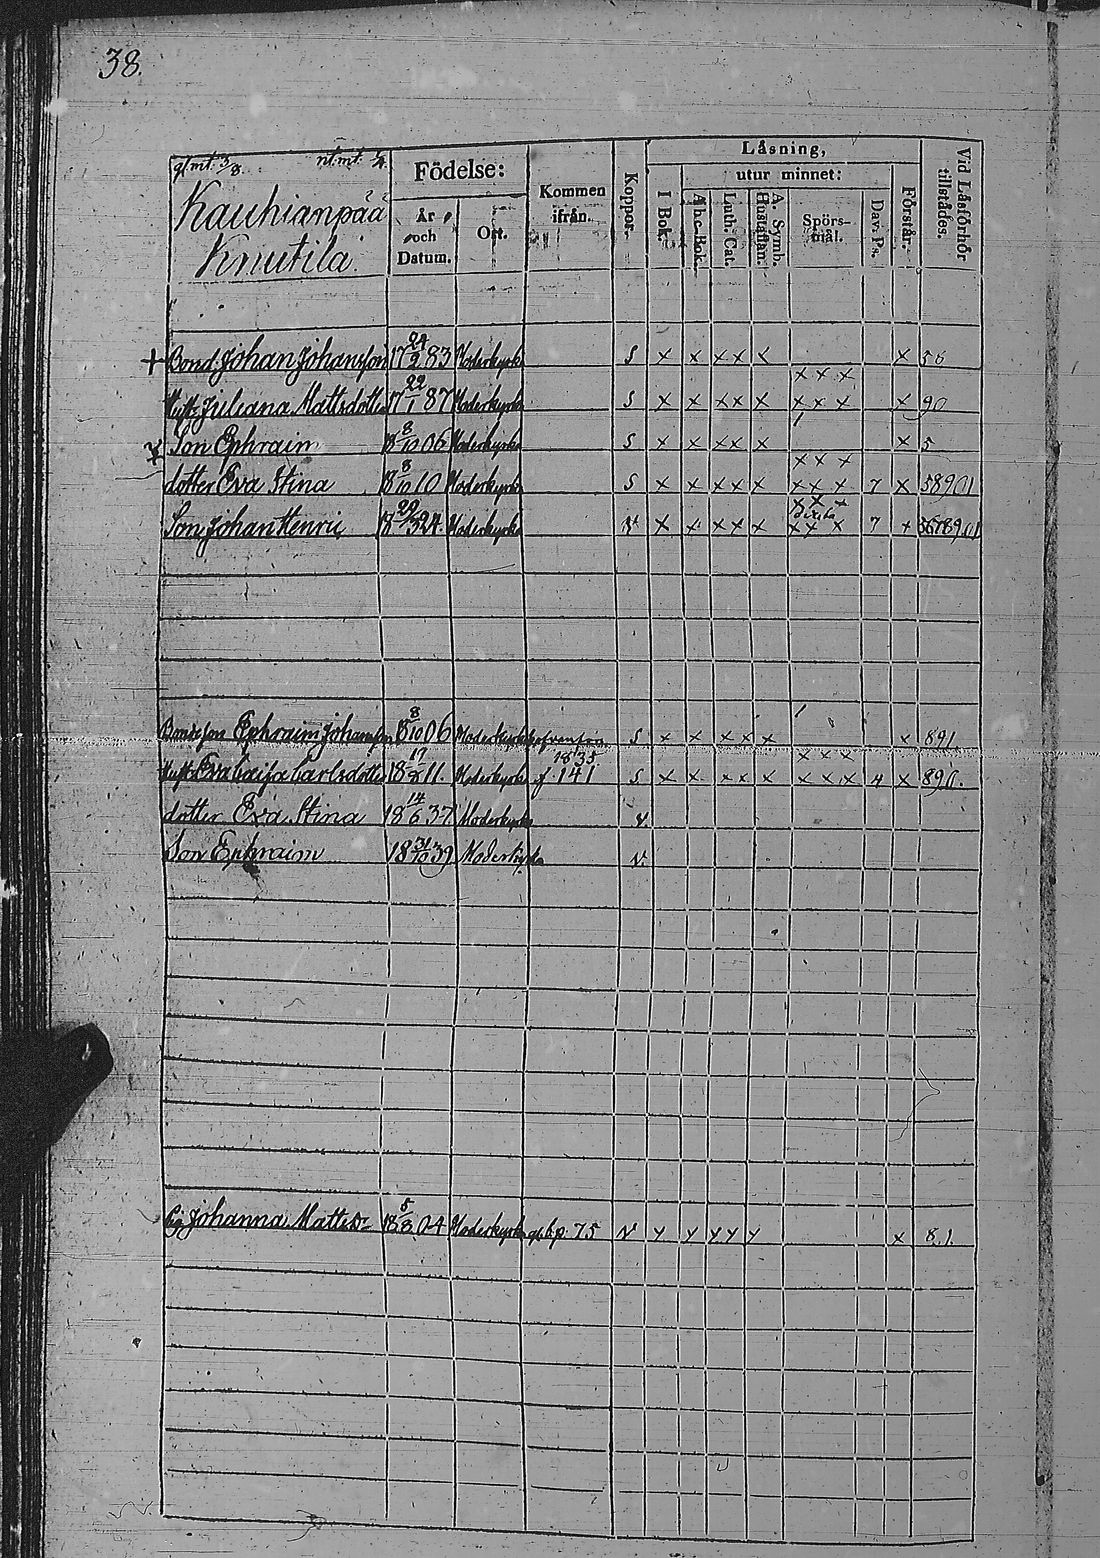 38.
gl. mt. 3/8. nt. mt. 1/4.
Kauhianpää
Knutila.
Födelse:
År och Datum.
Ort.
Kommen ifrån.
Koppor.
Läsning,
I Bok.
utur minnet:
Abc-Bok.
Luth. Cat.
A. Symb. Hustaflan.
Spörsmål.
Dav. Ps.
Förstår.
Vid Läsförhör tillstädes.
+ Bond. Johan Johansson 17 24/2 83 Moderkyrka S x x x x x x 56
x x x
Hust. Juliana Mattsdotter 17 22/1 87 Moderkyrka S x x x x x x x x x 90
Son Ephraim 18 8/10 06 Moderkyrka S x x x x x x 5
x x x
dotter Eva Stina 18 8/10 10 Moderkyrka S x x x x x x x x 7 x 58901
x x x
Son Johan Henric 18 29/3 24 Moderkyrka v x x x x x x x x 7 x
Bondeson Ephraim Johansson 18 8/10 06 Moderkyrka S x x x x x x 891
1835 x x x
Hust. Eva Carlsdotter 18 11. Moderkyrka 141 S x x x x x x x x 4 x 890.
dotter Eva Stina 18 14/6 37 Moderkyrka v
Son Ephraim 18 31/10 39 Moderkyrka v
Johanna Mattsdr 18 5/8 04 Moderkyrka gl. b. p. 75 v y y y y y x 8.1.